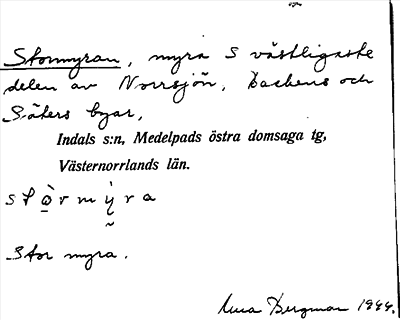 Stormyran, myra S västligaste
delen av Norrsjön, Backens och
Säters byar,
Indals s:n, Medelpads östra domsaga tg,
Västernorrlands län.
stò̱rmỳ̰ra
Stor myra.
Bergman 1944.